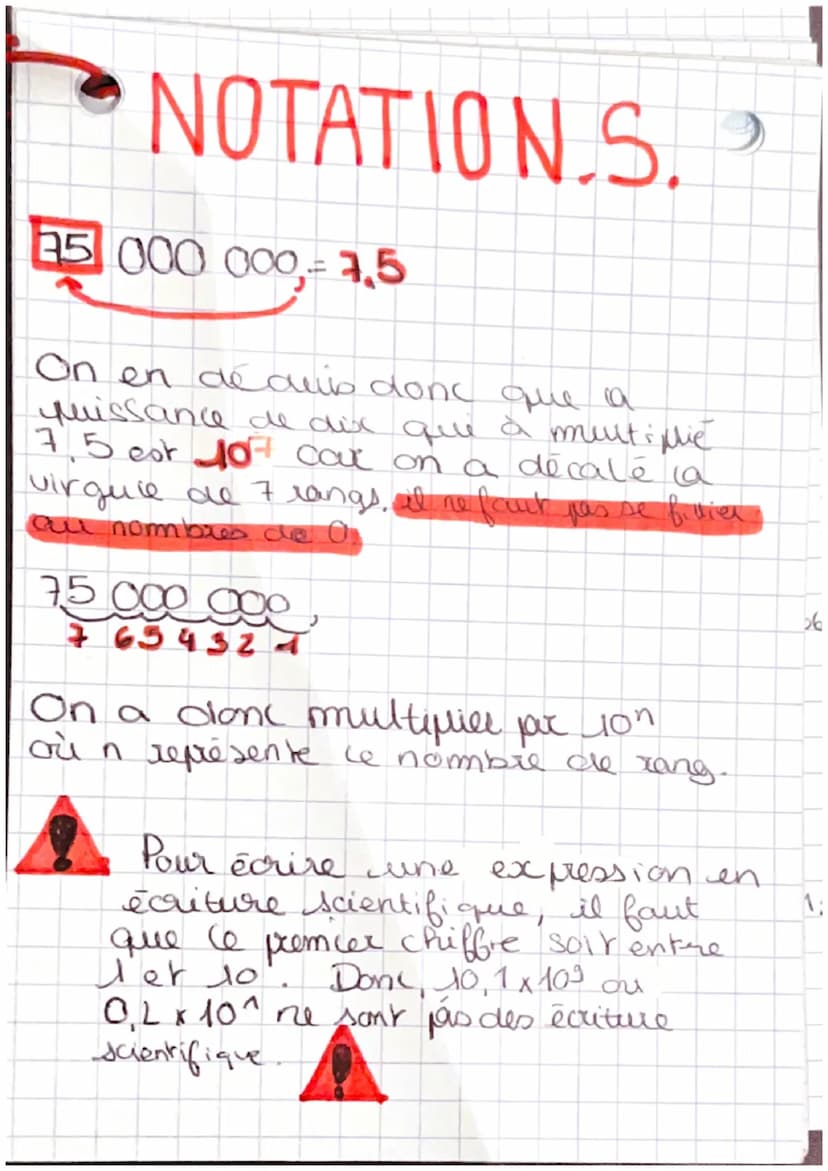 NOTATION.S.
75 000 000,= 7,5
On en déduis donc que la
puissance de dix qui à multiplié
7,5 est 10⁷ car on a décalé la
virgule de 7 rangs. il ne faut pas se fi
au nombres de 0.
75 000 000,
7 6 5 4 3 2 1
On a donc multiplier par 10ⁿ
où n représente le nombre de rang.
Pour écrire une expression en
écriture scientifique, il faut
que le premier chiffre soit entre
1 et 10. Donc, 10,1 x 10⁹ ou
0,2 x 10¹ ne sont pas des écriture
scientifique.